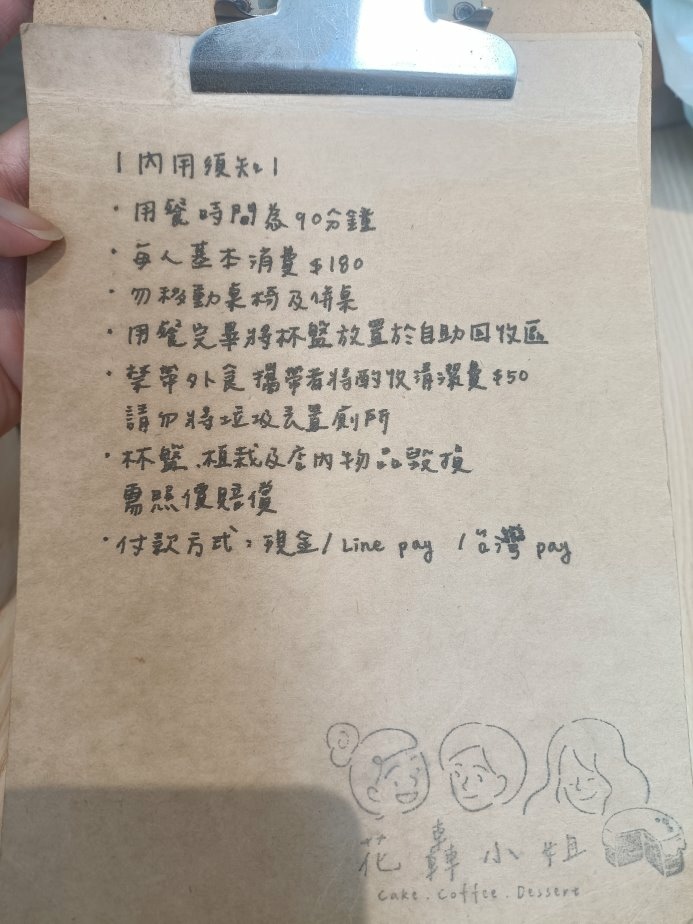 |內用須知|
·用餐時間為90分鐘
·每人基本消費$180
·勿移動桌椅及併桌
·用餐完畢將杯盤放置於自助回收區
·禁帶外食 攜帶者將酌收清潔費$50
請勿將垃圾丟置廁所
·杯盤、植栽及店內物品毀損
需照價賠償
·付款方式:現金/Line pay /台灣pay
花轟小姐
Cake.Coffee.Dessert